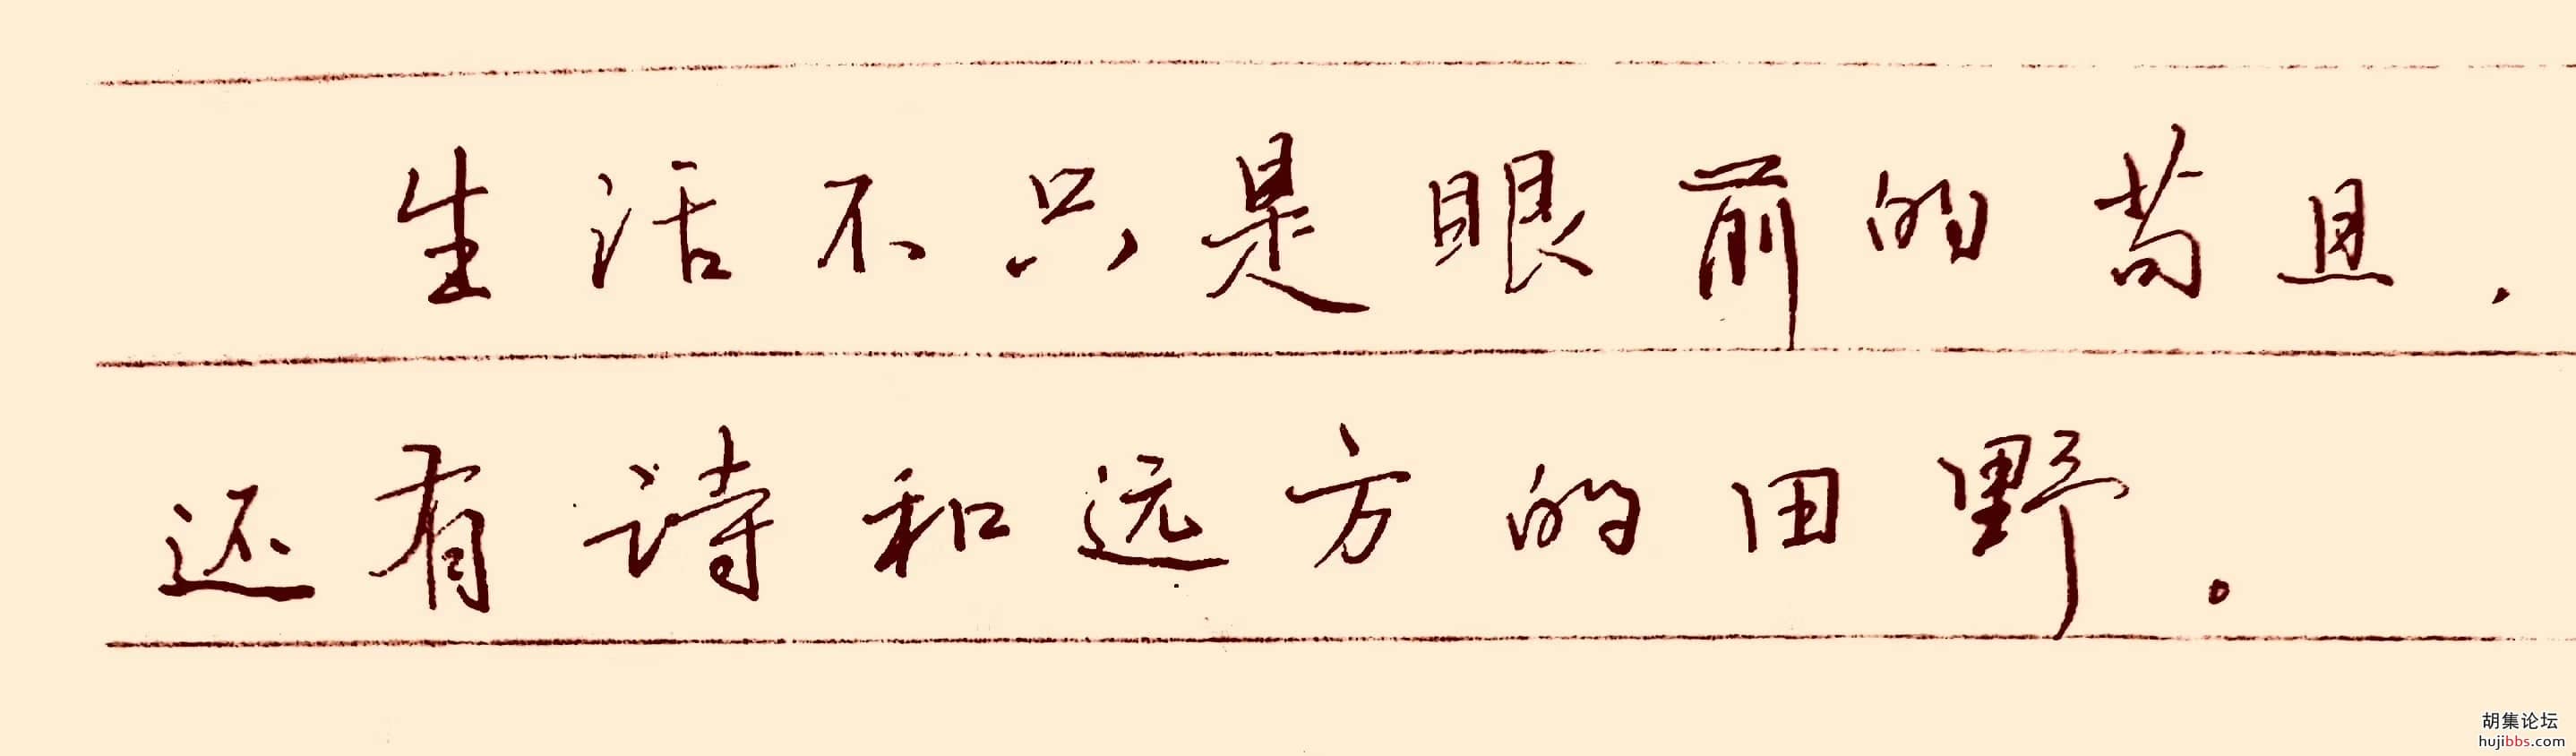 生活不只是眼前的苟且，
还有诗和远方的田野。
胡集论坛
hujibbs.com